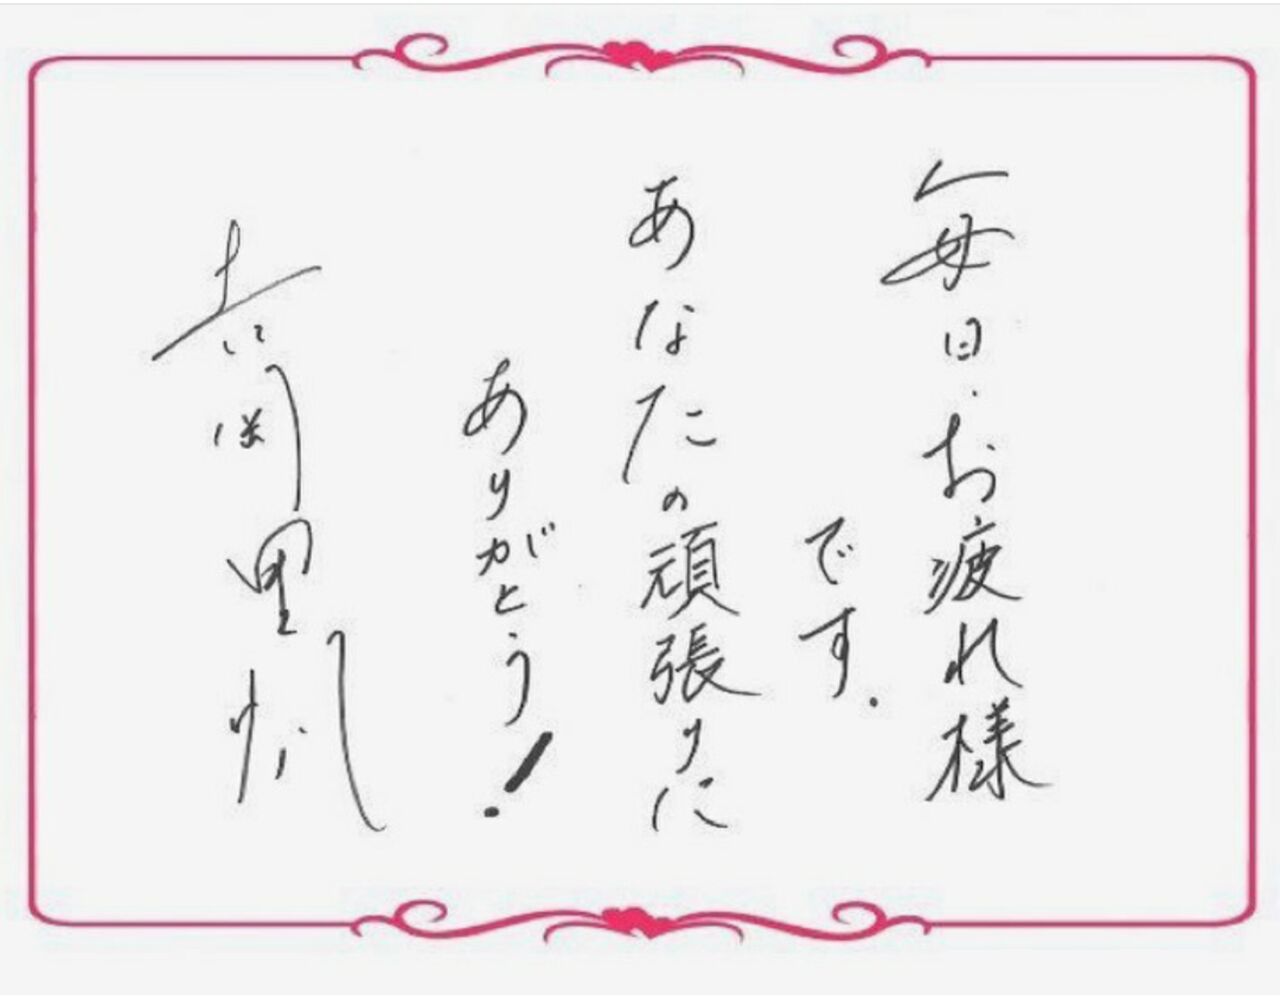 毎日.お疲れ様
です.
あなたの頑張りに
ありがとう!
吉岡里帆